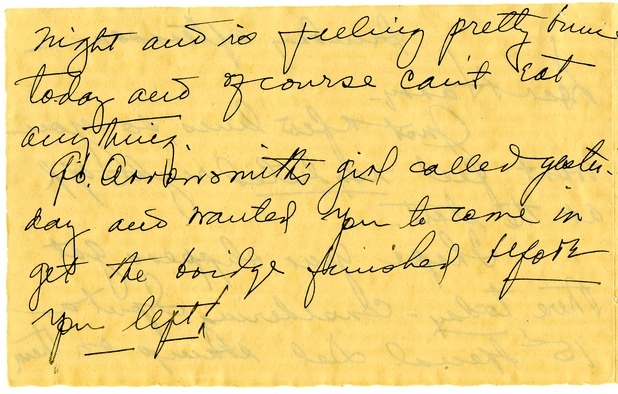 night and is feeling pretty bum
today and of course can't eat
anything.
Dr. Arrowsmith's girl called yester-
day and wanted you to come in
get the bridge finished before
you left!